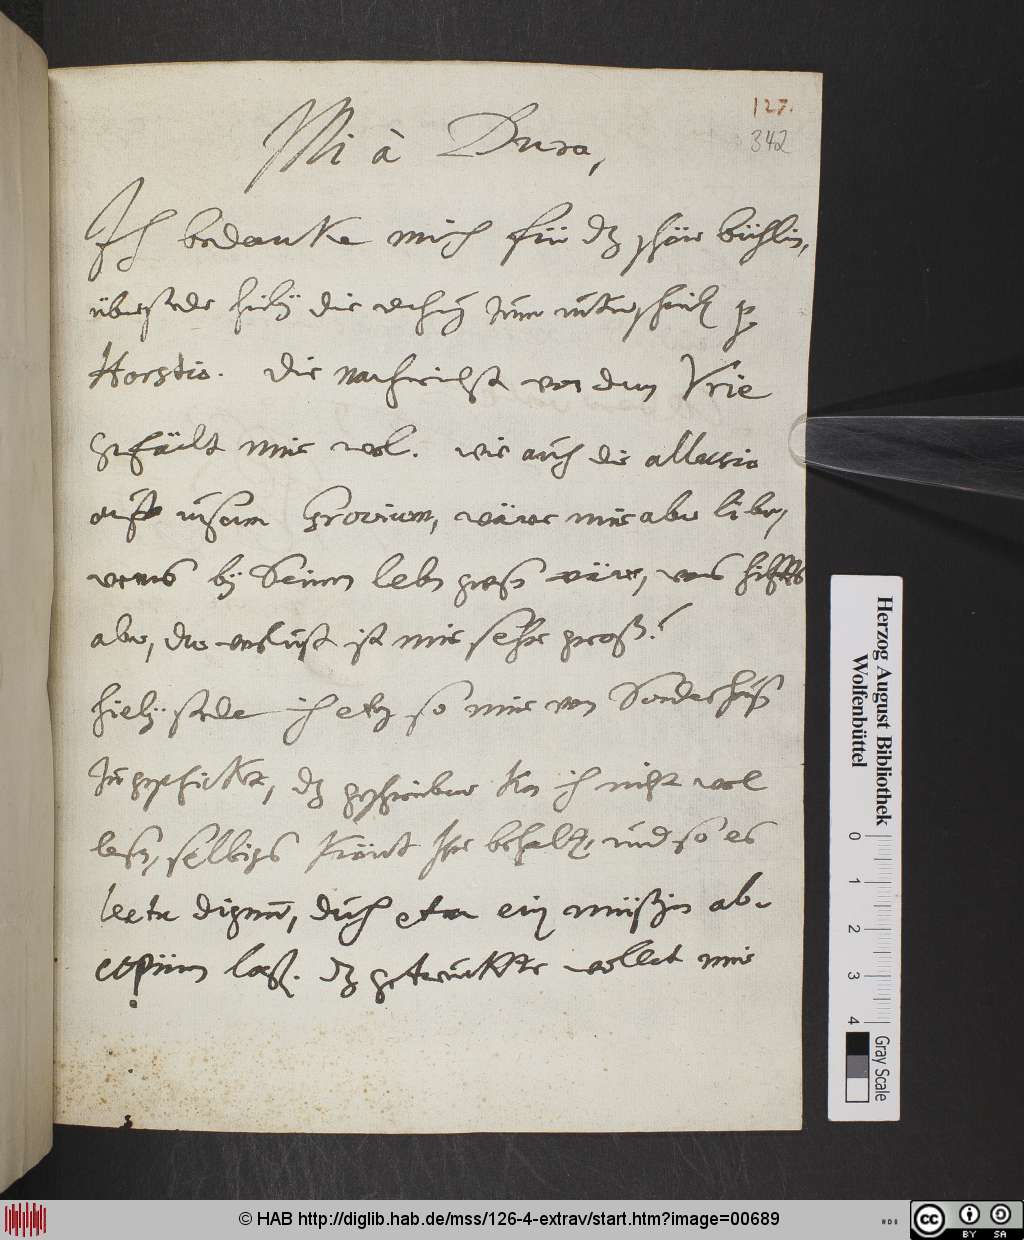 127.
342
Mi à Dura,
Ich bedanke mich für dz schöne büchlin,
übersende hiebÿ die
Horstio. die nachricht von dem Vrie
gefält mir wol. wie auch die allusio
auff unsern Grovium, wäre mir aber lieber,
wens bÿ Seinem leben gewesen wäre, was hilffts
aber, der verlust ist mir sehr gross!
hiebÿ sende ich etwz so mir von Sondershuss
zugeschicket, dz geschriebene kan ich nicht wol
lesen, selbigs könt Ihr behalten, und so es
lectu dignum, durch etwa ein müssigen ab-
copiirn lassen. dz getruckte wollet mir
Herzog August Bibliothek
Wolfenbüttel
0 1 2 3 4
Gray Scale
© HAB http://diglib.hab.de/mss/126-4-extrav/start.htm?image=00689
cc BY SA